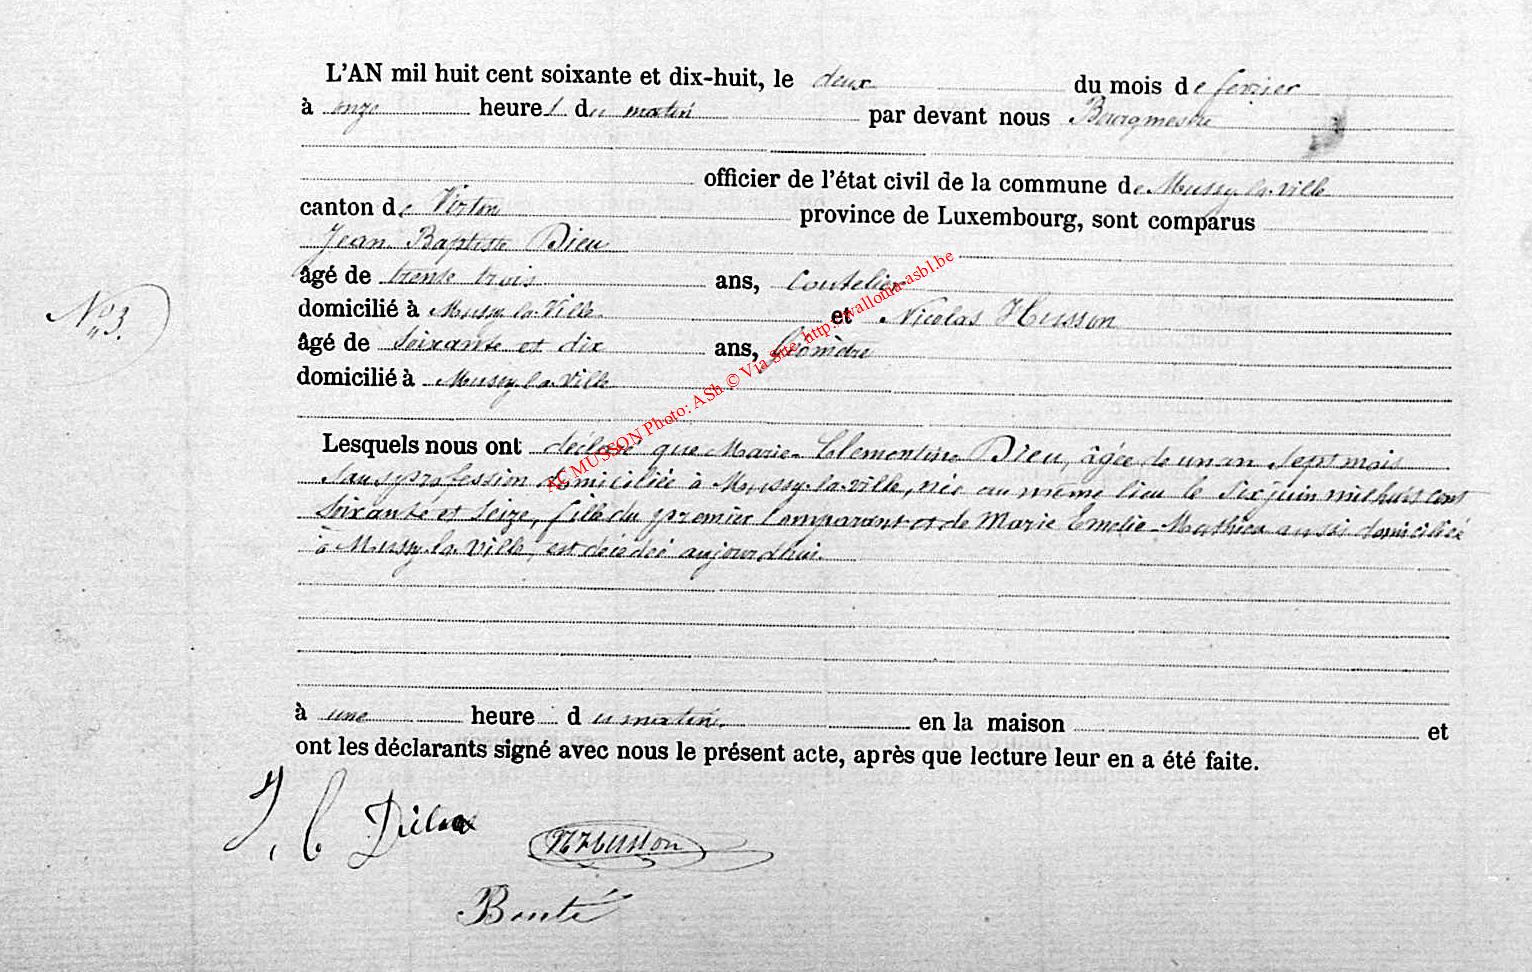 L'AN mil huit cent soixante et dix-huit, le deux du mois de fevrier
à onze heures du matin par devant nous Bourgmestre
officier de l'état civil de la commune de Mussy-la-ville
canton de Virton province de Luxembourg, sont comparus
Jean Baptiste Dieu
âgé de trente trois ans, Coutelier
domicilié à Mussy-la-Ville et Nicolas Husson
N° 3.
âgé de soixante et dix ans, Géomètre
domicilié à Mussy-la-Ville
Lesquels nous ont déclaré que Marie Clementine Dieu, âgée de un an sept mois
sans profession domiciliée à Mussy-la-ville, née au même lieu le six juin mil huit cent
soixante et seize, fille du premier Comparant et de Marie Emelie Mathieu aussi domiciliée
à Mussy-la-ville, est décédée aujourdhui.
à une heure du matin. en la maison et
ont les déclarants signé avec nous le présent acte, après que lecture leur en a été faite.
N Husson
Bonté
AC MUSSON Photo: ASh © Via Site http://wallonia-asbl.be